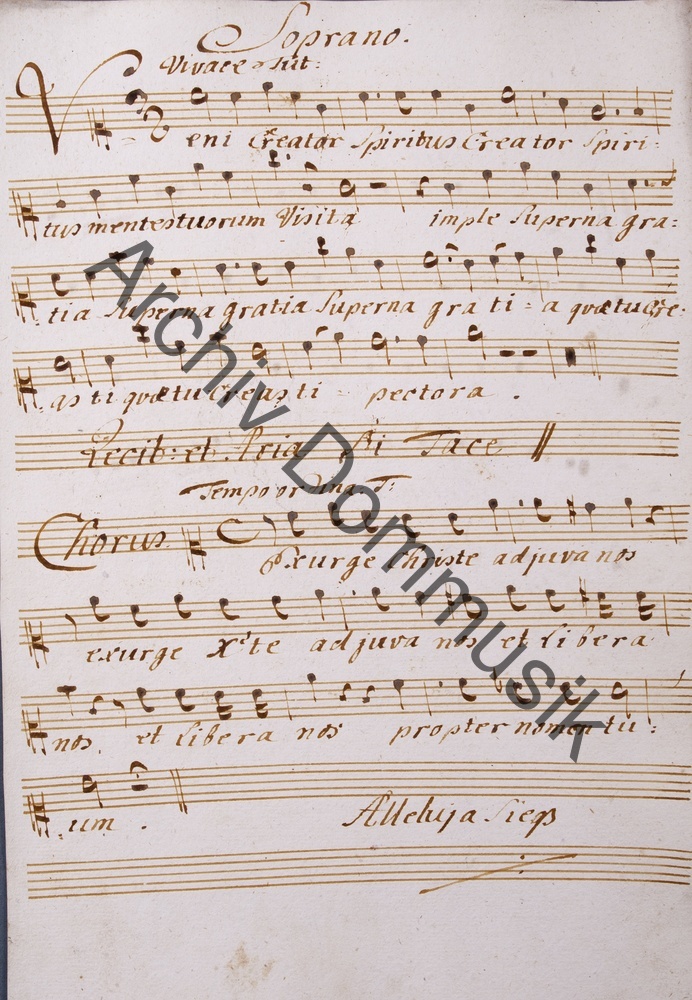 Soprano.
Vivace
Veni Creator Spiritus Creator Spiri:
tus mentes tuorum Visita imple Superna gra:
tia Superna gratia Superna gra ti = a quæ tu Cre:
as ti quæ tu Creas ti pectora.
Recit: et Aria Tace
Tempo ordina T:
Chorus
Exurge Christe adjuva nos
exurge Xste adjuva nos et libera
nos, et libera nos propter nomen tu:
um.
Alleluja
Archiv Dommusik